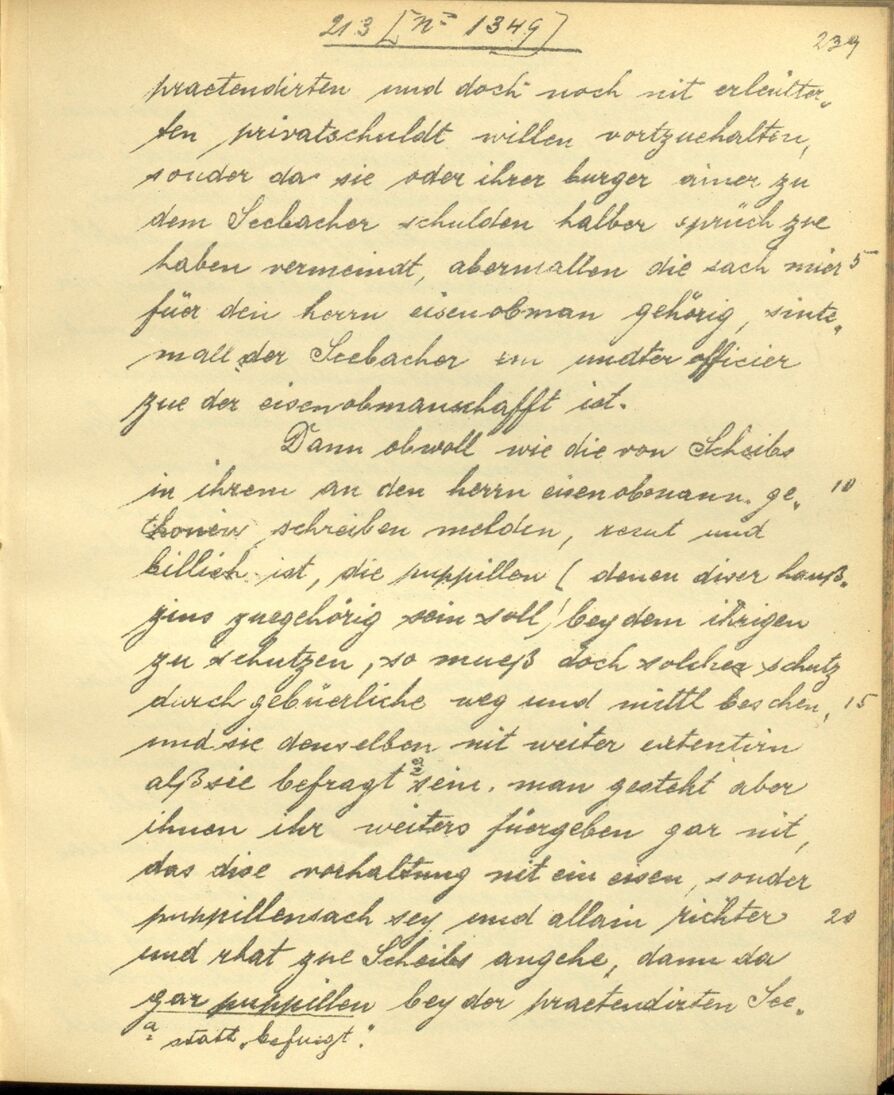 213 [No 1349]
239
praetendirten und doch noch nit erleütter„
ten privatschuldt willen vortzuehalten,
sonder da sie oder ihrer burger ainer zu
dem Seebacher schulden halber sprüch zue
haben vermeindt, abermallen die sach mier 5
füer den herrn eisenobman gehörig, sinte„
mall der Seebacher ein undter officier
zue der eisenobmanschafft ist.
Dann obwoll wie die von Scheibs
in ihrem an den herrn eisenobmann ge„ 10
thonen schreiben melden, recht und
billich ist, die puppillen (denen diser hauß„
zins zuegehörig sein soll) bey dem ihrigen
zu schutzen, so mueß doch solcher schutz
durch gebüerliche weg und mittl beschen, 15
und sie denselben nit weiter extentirn
alß sie befragt a sein. man gesteht aber
ihnen ihr weiters füergeben gar nit,
das dise vorhaltung nit ein eisen, sonder
puppillensach sey und allain richter 20
und rhat zue Scheibs angehe, dann da
gar puppillen bey der praetendirten See„
a statt „befuegt".